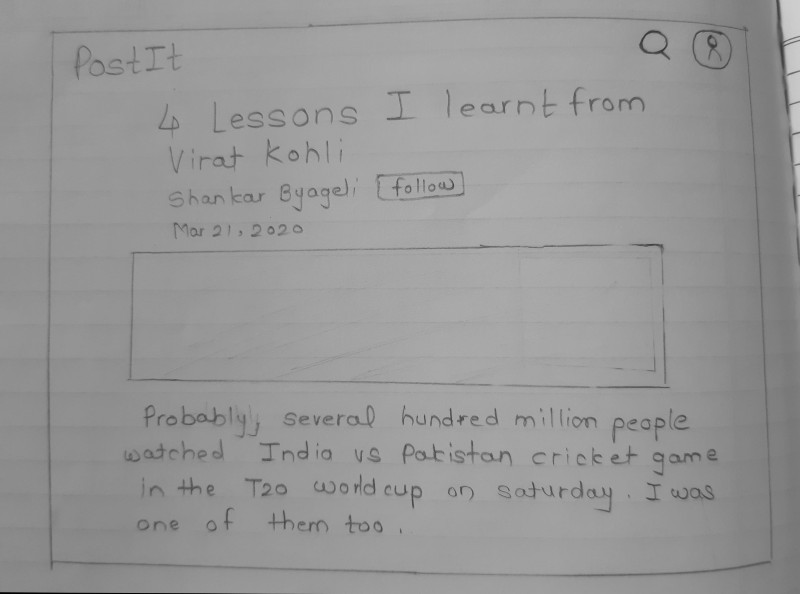 PostIt
4 Lessons I learnt from
Virat Kohli
Shankar Byageli follow
Mar 21, 2020
Probably, several hundred million people
watched India vs Pakistan cricket game
in the T20 world cup on saturday. I was
one of them too.